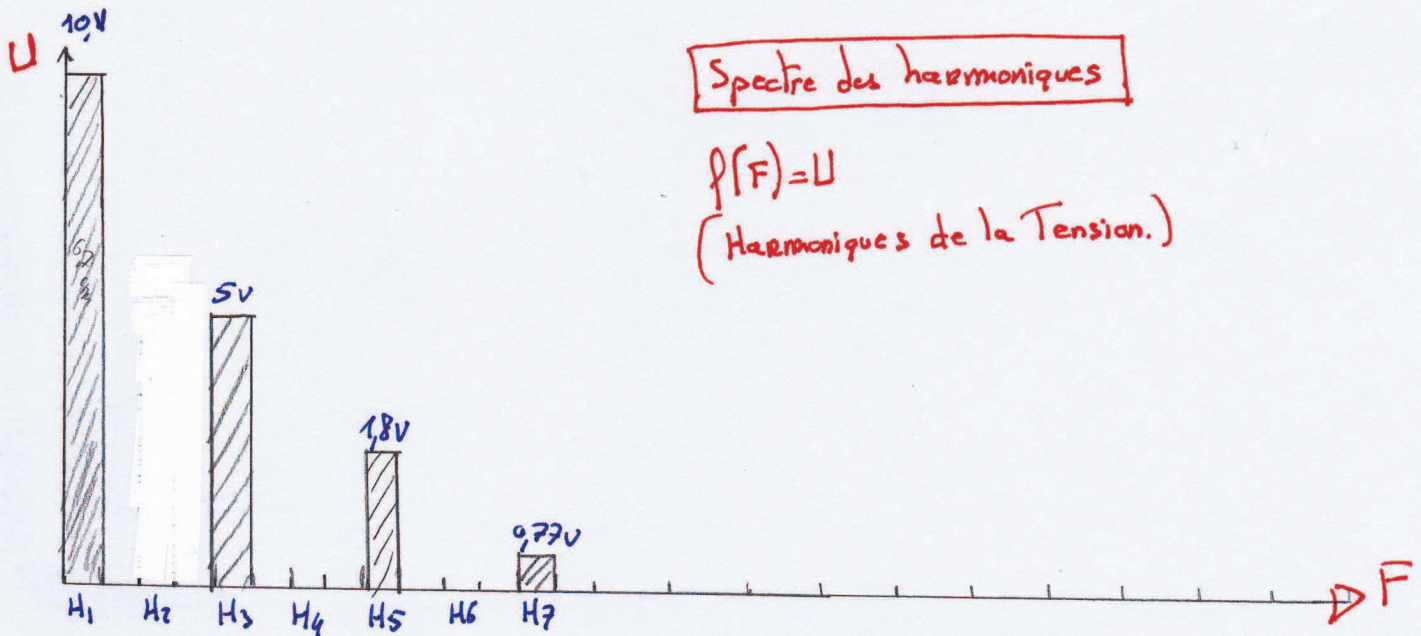 10,V
U
Spectre des harmoniques
f(F)=U
(Harmoniques de la Tension.)
5V
1,8V
0,77V
H1 H2 H3 H4 H5 H6 H7
F